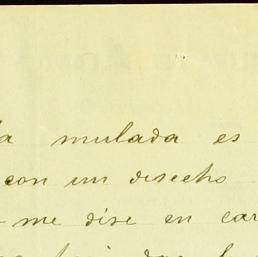 la mulada es
con un desecho
me dise en car